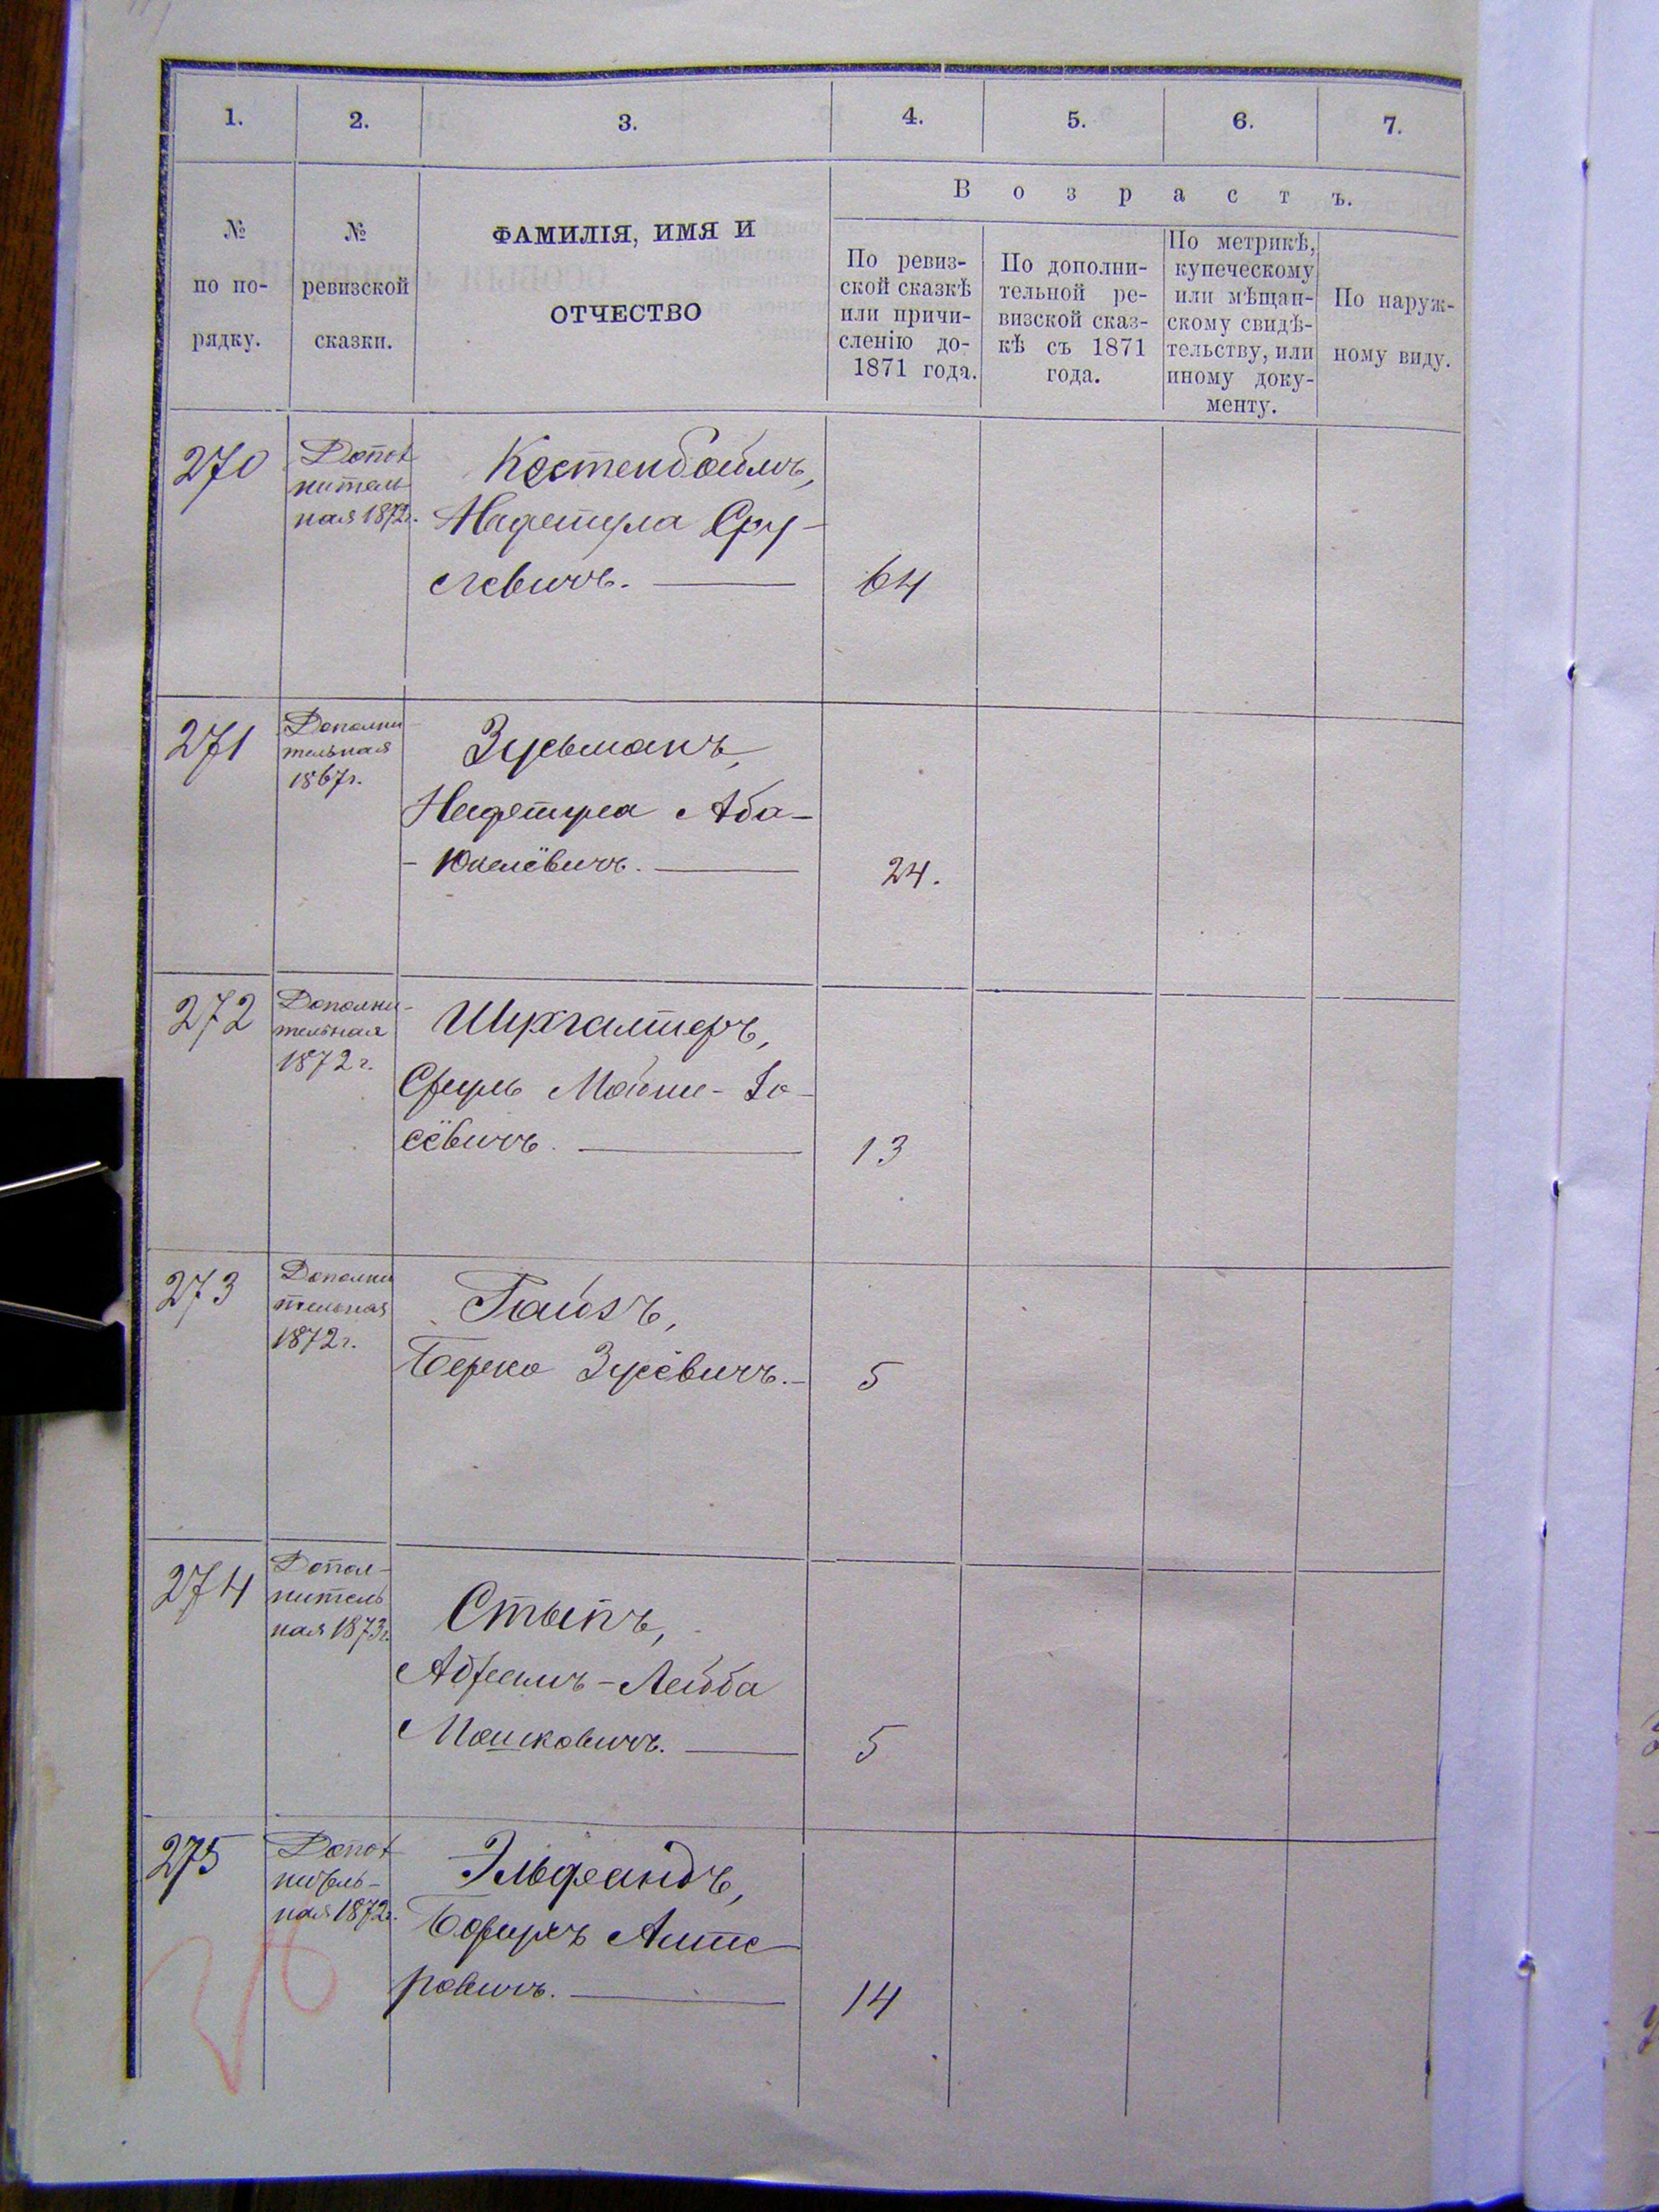 1.
2.
3.
4.
5.
6.
7.
Возрастъ.
№
по по-
рядку.
№
ревизской
сказки.
ФАМИЛІЯ, ИМЯ И
ОТЧЕСТВО
По ревиз-
ской сказкѣ
или причи-
сленію до-
1871 года.
По дополни-
тельной ре-
визской сказ-
кѣ съ 1871
года.
По метрикѣ,
купеческому
или мѣщан-
скому свидѣ-
тельству, или
иному доку-
менту.
По наруж-
ному виду.
270
Допол
нитель
ная 1872г.
Костенбоймъ,
Нафтула Сру-
левичъ.
64
271
Дополни
тельная
1867г.
Зусьманъ,
Нафтула Аба-
-Юкелёвичъ.
24.
272
Дополни-
тельная
1872 г.
Шухгалтеръ,
Сруль Мойше-Іо-
сёвичъ.
13
273
Дополни
тельная
1872г.
Гайзъ,
Берко Зусёвичъ.-
5
274
Допол-
нитель
ная 1873г.
Стыпъ,
Абрамъ-Лейба
Мошковичъ.
5
275
Допол
нитель-
ная 1872г.
Эльфандъ,
Борухъ Алте-
ровичъ.
14